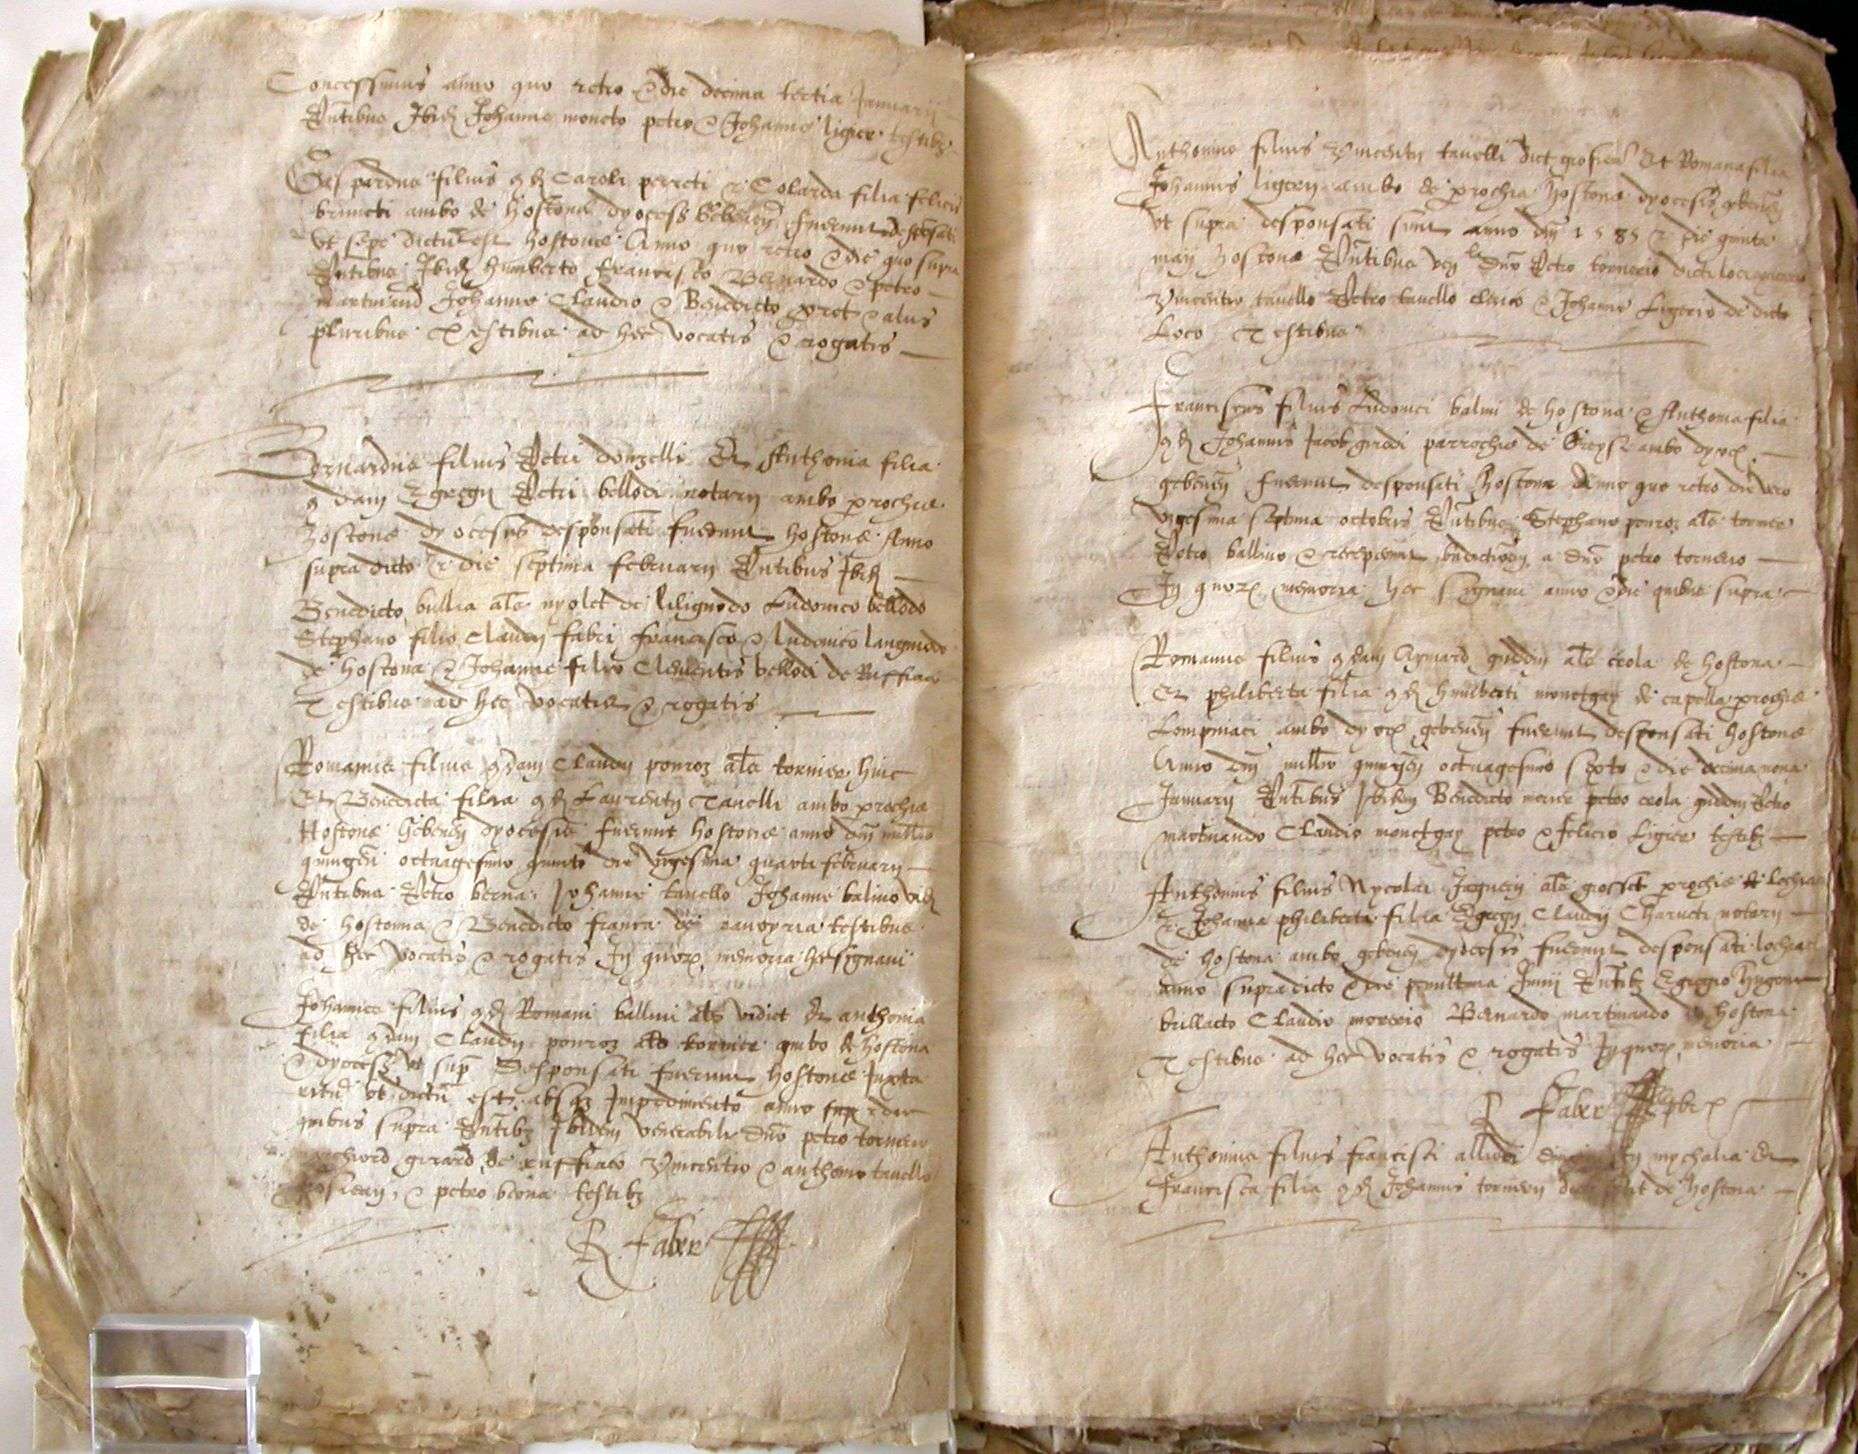 Concessimus anno quo retro & die decima tertia Januarii
Pntibus Ibid Johanne moneto petro & Johanne ligier testibz
Gaspardus filius qd Caroli perreti & Colarda filia felicis
bruneti ambo de hostona dyoces gebenn fuerunt desponsati
Ut sepe dictu est hostone Anno quo retro & die quo supra
Pntibus Ibid humberto francisco Bernardo & petro
martinand Johanne Claudio & Benedicto pret & aliis
pluribus Testibus ad hec vocatis & rogatis
Bernardus filius Petri donzelli Et Anthonia filia
qdam Egregii Petri bellodi notarii ambo prochie
hostone dyocesis desponsati fuerunt hostone Anno
supra dicto & die septima februarii Pntibus Ibid
Benedicto bullia als nyolet de lilignodo Ludovico bellodo
Stephano filio Claudii fabri francisco & ludovico
de hostona & Johanne filio Clementis bellodi de Ruffiaco
Testibus ad hec vocatis & rogatis
Romanus filius qdam Claudii ponroz als tornier huic
Et Benedicta filia qd Laurentii Tavelli ambo prochie
Hostone Gebenn dyocesis fuerunt hostone anno dni millio
quingen octuagesimo quinto die vigesima quarta februarii
Pntibus Petro berna Johanne tavello Johanne balivo
de hostona & Benedicto franca de testibus
ad hec vocatis & rogatis In quorz memoria hec signavi
Johannes filius qd Romani ballivi als vidict Et anthonia
filia qdam Claudii ponroz als tornier ambo de hostona
& dyoces ut sup Desponsati fuerunt hostone Juxta
ritu ut dictu est absqz Impedimento anno & die
quibus supra Pntibz Ibidem venerabili dno petro tornerio
girard de ruffiaco Vincentio & anthonio tavello
& petro berna testibz
R. Faber
Anthonius filius Vincentii tavelli dict grosficat Et Romana filia
Johannis ligerii ambo de prochia hostone dyocesis gebenn
Ut supra desponsati sunt anno dni 1585 & die quinta
maii hostone Pntibus ven dno Petro tornerio dicti loci
Vincentio tavello Petro tavello clerico & Johanne Ligerio de dicto
Loco Testibus
Franciscus filius Ludovici balivi de hostona & Anthonia filia
qd Johannis Jacob girodi parrochie de ambo dyoc
gebenn fuerunt desponsati hostone Anno quo retro die vero
vigesima septima octobris Pntibus Stephano ponroz als tornier
Petro ballivo & receperunt benedictionem a dno petro tornerio
In quorz memoria hec signavi anno & die quibus supra
Romanus filius qdam Aymard als crola de hostona
Et philiberta filia qd humberti monetgay de capella prochie
Lompniaci ambo dyoc gebenn fuerunt desponsati hostone
Anno dni millio quingen octuagesimo sexto & die decima nona
Januarii Pntibus Ibidem Benedicto petro crola Petro
martinando Claudio monetgay petro & felicio Ligier testibz
Anthonius filius Nycolai als prochie de Lochia
& Johanna philiberta filia Egregii Claudii Charveti notarii
de hostona ambo gebenn dyocesis fuerunt desponsati
anno supradicto & die penultima Junii Pntibz Egregio hugone
brillacto Claudio mercerio Bernardo martinando de hostona
Testibus ad hec vocatis & rogatis In quorz memoria
R Faber
Anthonius filius francisci alliodi mychalia Et
Francisca filia qd Johannis tornerii de hostona